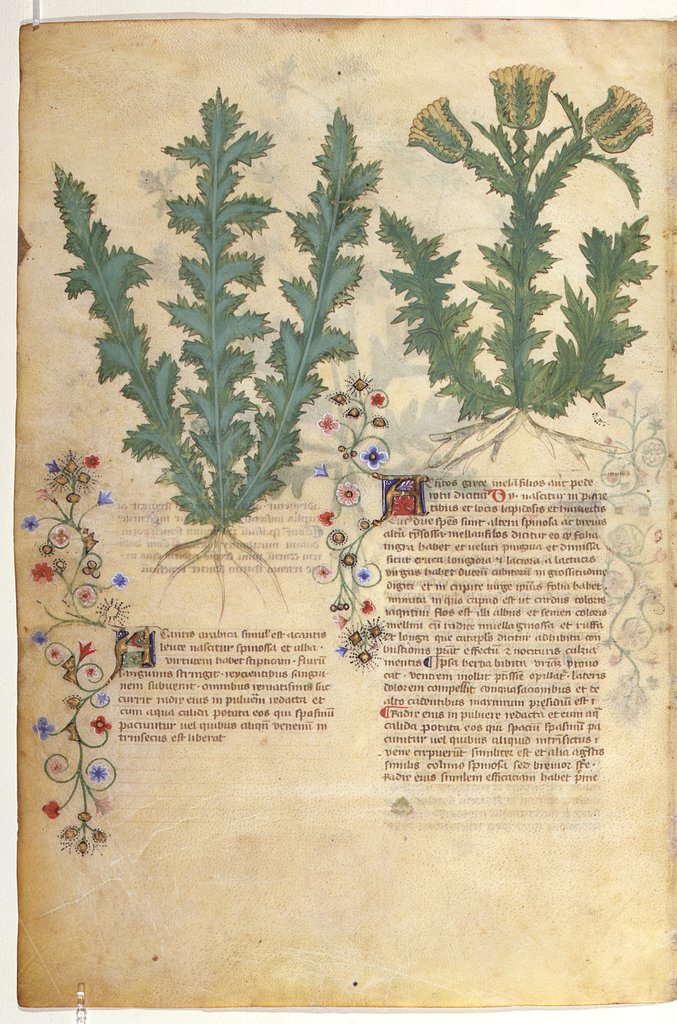 Acantis arabica simul est acantis
leuce nascitur spinossa et alba
virtutem habet stipticam fluxū
sanguinis stringit reycientibus sangui
nem subuenit omnibus reumatismis suc
currit radix eius in puluerē redacta et
cum aqua calida potata eos qui spasmū
paciuntur uel quibus aliqđ venenum in
trinsecus est liberat
grece melafilios aut pede
dicitur nascitur in
tibus et locis lapidosis et
due spēs sunt altera spinosa ac breuis
altā mellanfilos dicitur eo ꝙ folia
nigra habet et veluti pinguia et
sicut eruca longiora ⁊ laciora a lactucis
virgas habet duorū cubitorū in grossitudine
digiti et in capite virge ipsius folia habet
minuta in qua capud est ut cardus coloris
iaqntini flos est illi albus et semen coloris
mellini cū radice muellaginossa et ruffa
et longa que cataplā dicitur adhibita con
bustionis effectū ⁊ nocituris calzia
mentis Ipsa herba bibita vrinā prouo
cat ventrem mollit ptissim lateris
dolorem compellit conquasacionibus et de
alto cadentibus maximum presidium est
Radix eius in puluere redacta et cum aqͣ
calida potata eos qui spasmū pa
ciuntur uel quibus aliquid intrīsictus
vene similiter est et alia agrstis
similis spinosa sed breuior
Radix eius similem efficatiam habet